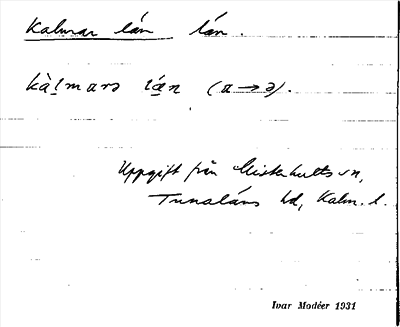 Kalmar län län.
kàlmarə lǽn (a→ə).
Uppgift från Misterhults sn,
Tunaläns hd, Kalm. l.
Ivar Modéer 1931